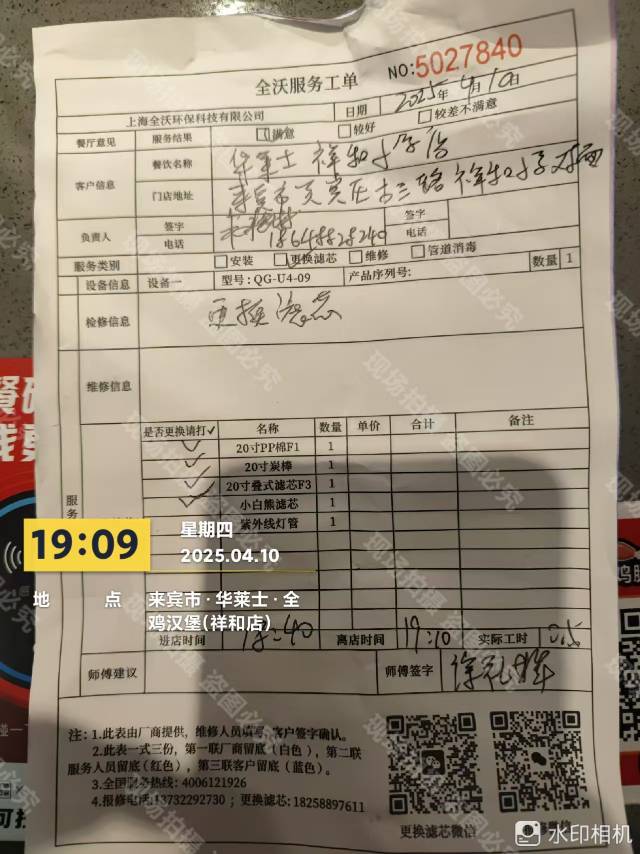 全沃服务工单
NO:5027840
上海全沃环保科技有限公司
日期 2025年4月10日
餐厅意见 服务结果 满意 较好 较差不满意
客户信息 餐饮名称 华莱士 祥和小学店
门店地址 来宾市兴宾区古三路祥和小学对面
负责人 签字 签字
电话 电话
服务类别 安装 更换滤芯 维修 管道消毒
设备信息 设备一 型号:QG-U4-09 产品序列号: 数量 1
检修信息 更换滤芯
维修信息
是否更换请打✓ 名称 数量 单价 合计 备注
✓ 20寸PP棉F1 1
✓ 20寸炭棒 1
✓ 20寸叠式滤芯F3 1
✓ 小白熊滤芯 1
紫外线灯管 1
服务
19:09
星期四
2025.04.10
地 点 来宾市·华莱士·全
鸡汉堡(祥和店)
进店时间 18:40 离店时间 19:10 实际工时 0.5
师傅建议 师傅签字
注:1.此表由厂商提供,维修人员填写,客户签字确认。
2.此表一式三份,第一联厂商留底(白色),第二联
服务人员留底(红色),第三联客户留底(蓝色)。
3.全国服务热线:4006121926
4.报修电话:13732292730;更换滤芯:18258897611
更换滤芯微信
维修微信
水印相机
现场拍摄 盗图必究